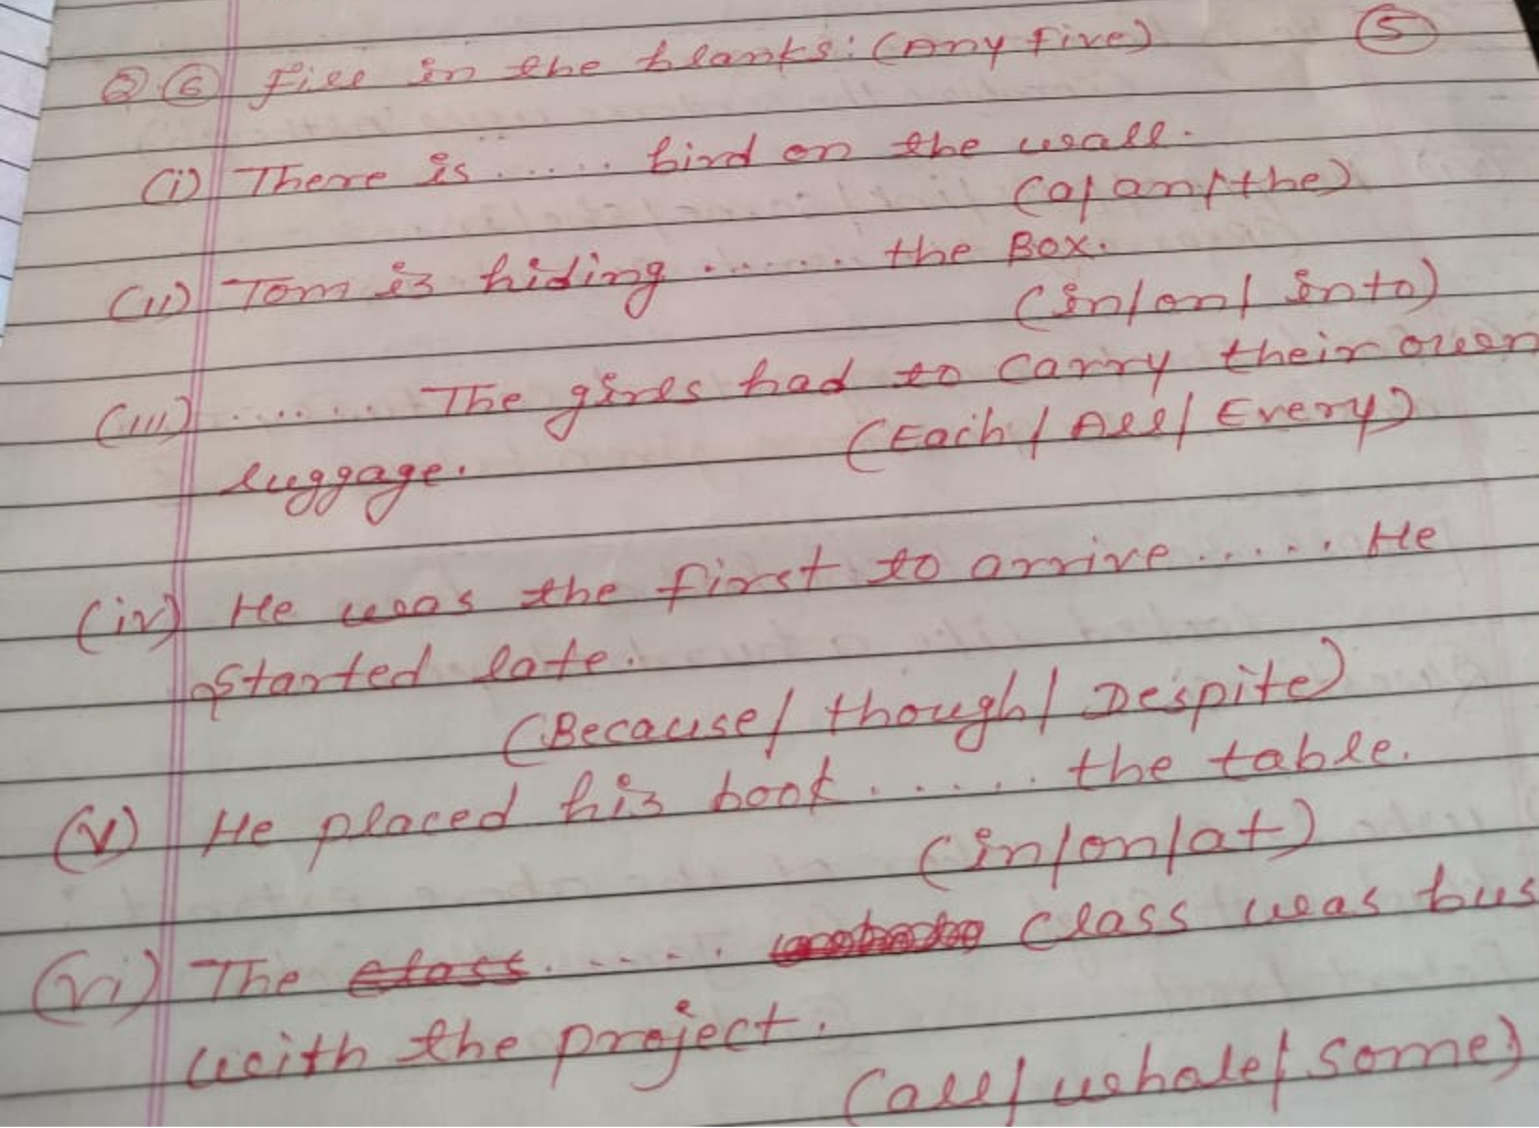 Q ⑥ Fill in the blanks: (Any Five) ⑤
(i) There is ..... bird on the wall.
(a/an/the)
(ii) Tom is hiding ...... the Box.
(in/on/into)
(iii) ...... The girls had to carry their own
(Each/All/Every)
luggage.
(iv) He was the first to arrive ..... He
started late.
(Because/though/Despite)
(v) He placed his book ..... the table.
(in/on/at)
(vi) The ..... class was bus
with the project.
(all/whole/some)